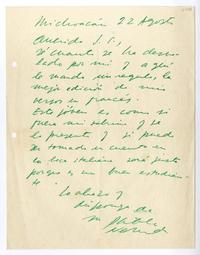 Michoacán 22 Agosto
Querido J. T.,
Sé cuanto se ha desve
lado por mí y aquí
le mando un regalo, la
mejor edición de mis
versos en francés.
Este joven es como si
fuera mi sobrino y se
lo presento y si puede
ser tomado en cuenta en
la beca italiana será justo
porque es un buen estudian
te.
Lo abrazo y
disponga de
su Pablo
Neruda